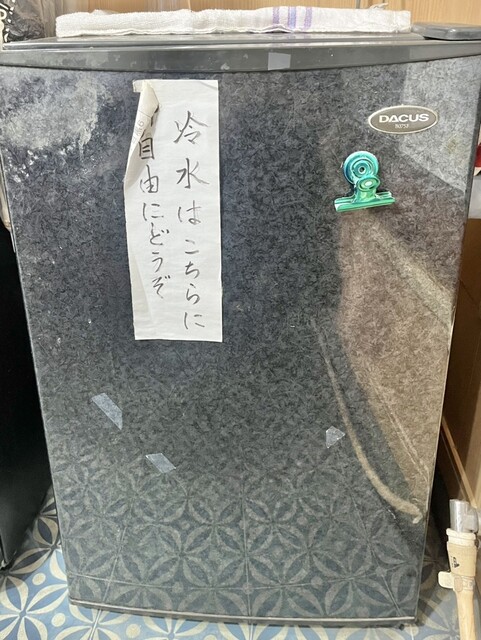 冷水はこちらに
自由にどうぞ
DACUS